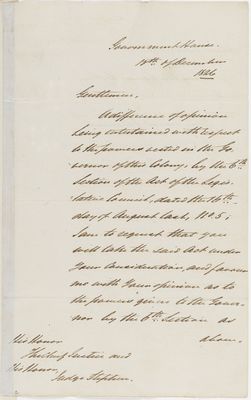 Government House.
18th of December
1826
Gentlemen,
A difference of opinion
being entertained with respect
to the powers vested in the Go-
vernor of this Colony, by the 6th
Section of the Act of the Legis-
lative Council, dated the 16th
day of August last, No 5;
I am to request that you
will take the said Act under
Your Consideration, and favour
me with Your opinion as to
the powers given to the Gover-
nor by the 6th Section as
above.
His Honor
The Chief Justice and
His Honor,
Judge Stephen.